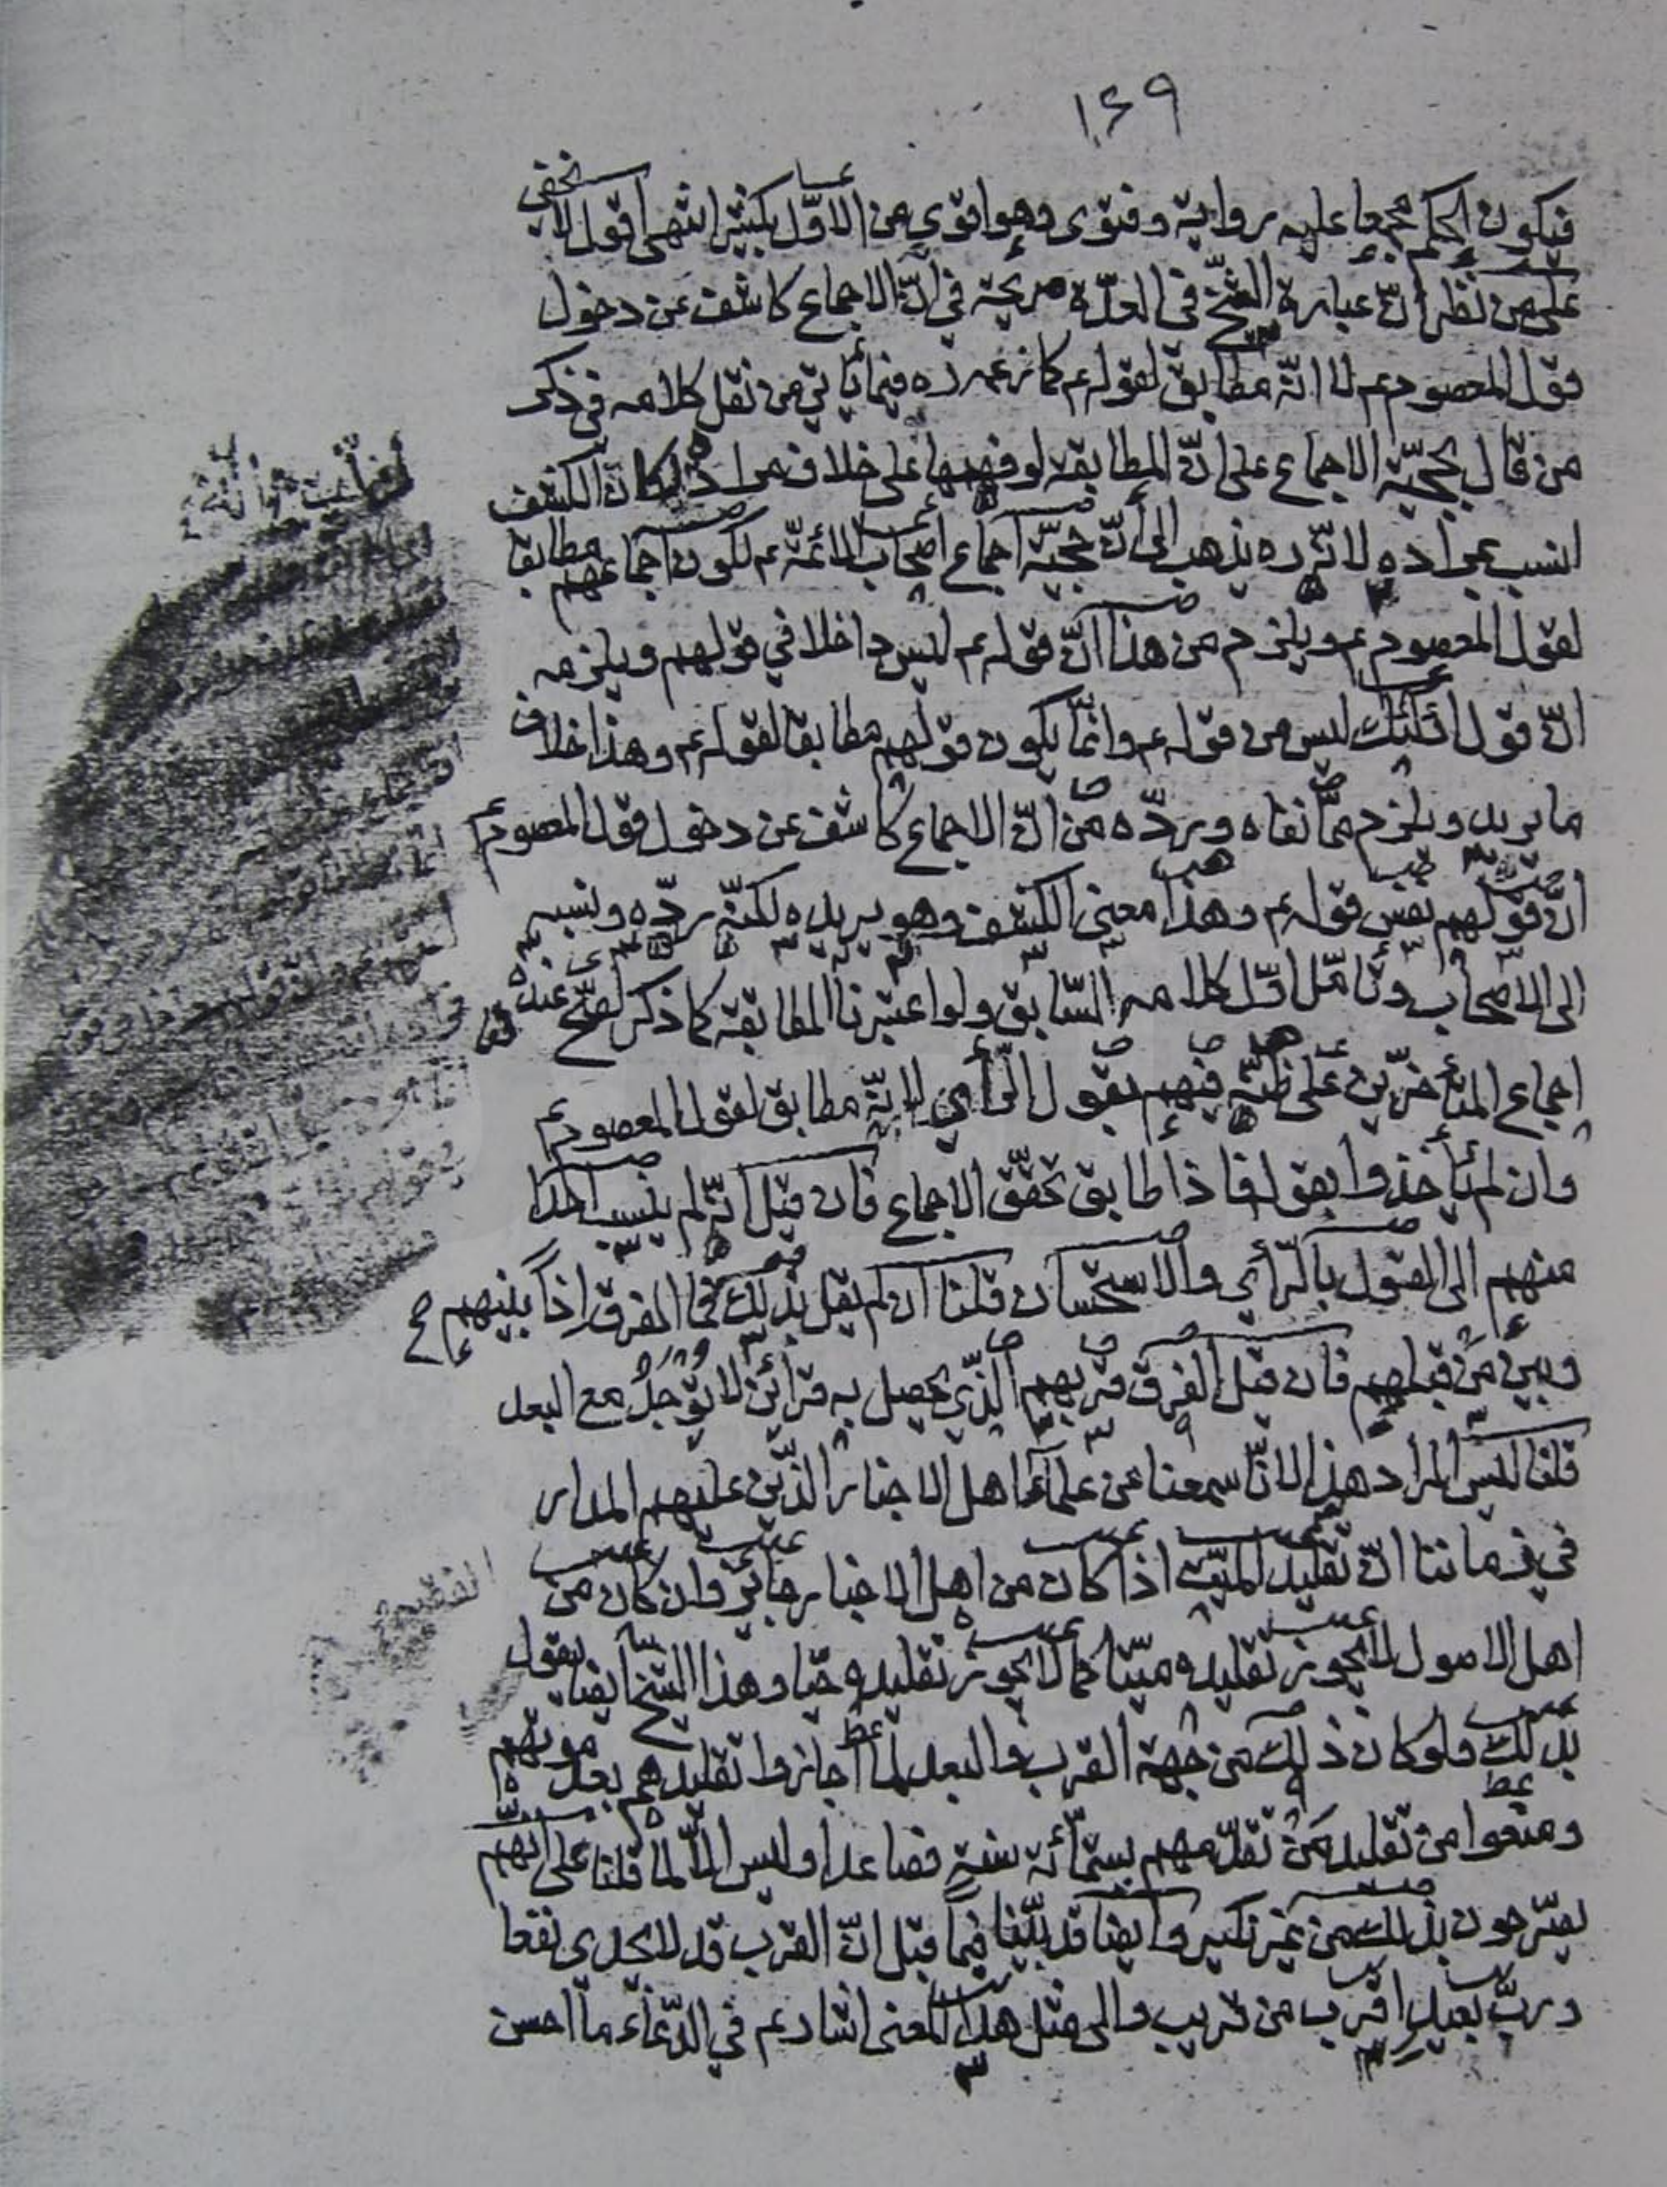 ١٤٩
فيكون الحكم مجمعا عليه رواية وفتوى وهو اقوى من الاوّل بكثير انتهى اقول لا يخفى
على من نظر انّ عبارة الشيخ في العدّة صريحة في انّ الاجماع كاشف عن دخول
قول المعصوم عم لا انّه مطابق لقوله عم كما زعمه ره فيما يأتي من نقل كلامه في ذكر
من قال بحجيّة الاجماع على انّ المطابقة لو فهمها على خلاف مراده لكان الكشف
انسب بمراده لانّه ره يذهب الى أنّ حجيّة اجماع اصحاب الائمّة عم لكون اجماعهم مطابقا
لقول المعصوم عم ويلزم من هذا انّ قوله عم ليس داخلا في قولهم ويلزمه
انّ قول اولئك ليس من قوله عم وانّما يكون قولهم مطابقا لقوله عم وهذا خلاف
ما يريد ويلزم ممّا نفاه وردّه من انّ الاجماع كاشف عن دخول قول المعصوم عم
انّ قولهم نفس قوله عم وهذا معنى الكشف وهو يريده لكنّه ردّه ونسبه
الى الاصحاب وتأمّل اوّل كلامه السّابق ولو اعتبرنا المطابقة كما ذكر لصحّ عنده
اجماع المتأخرّين على ظنّه فيهم بقول الرّأي لانّه مطابق لقول المعصوم عم
وان لم يأخذوا بقوله فاذا طابق تحقّق الاجماع فان قيل انّه لم ينسب احدا
منهم الى القول بالرّأي والاستحسان قلنا ان لم يقل بذلك فما الفرق اذا بينهم ح
وبين من قبلهم فان قيل الفرق قربهم الذّي يحصل به قرائن لا توجد مع البعد
قلنا ليس المراد هذا لانّا سمعنا من علماء اهل الاخبار الذّين عليهم المدار
في زماننا انّ تقليد الميّت اذا كان من اهل الاخبار جائز وان كان من
اهل الاصول لا يجوز تقليده ميّتا كما لا يجوز تقليده حيّا وهذا الشيخ ايضا يقول
بذلك ولو كان ذلك من جهة القرب والبعد لما اجازوا تقليدهم بعد موتهم
ومنعوا من تقليد من تقدّمهم بستمّائة سنة فصاعدا وليس الّا لما قلنا على انّهم
يصّرحون بذلك من غير نكير وايضا قد بيّنا فيما قبل انّ القرب قد لا يجدى نفعا
وربّ بعيد اقرب من قريب والى مثل هذا المعنى اشار عم في الدّعاء ما احسن